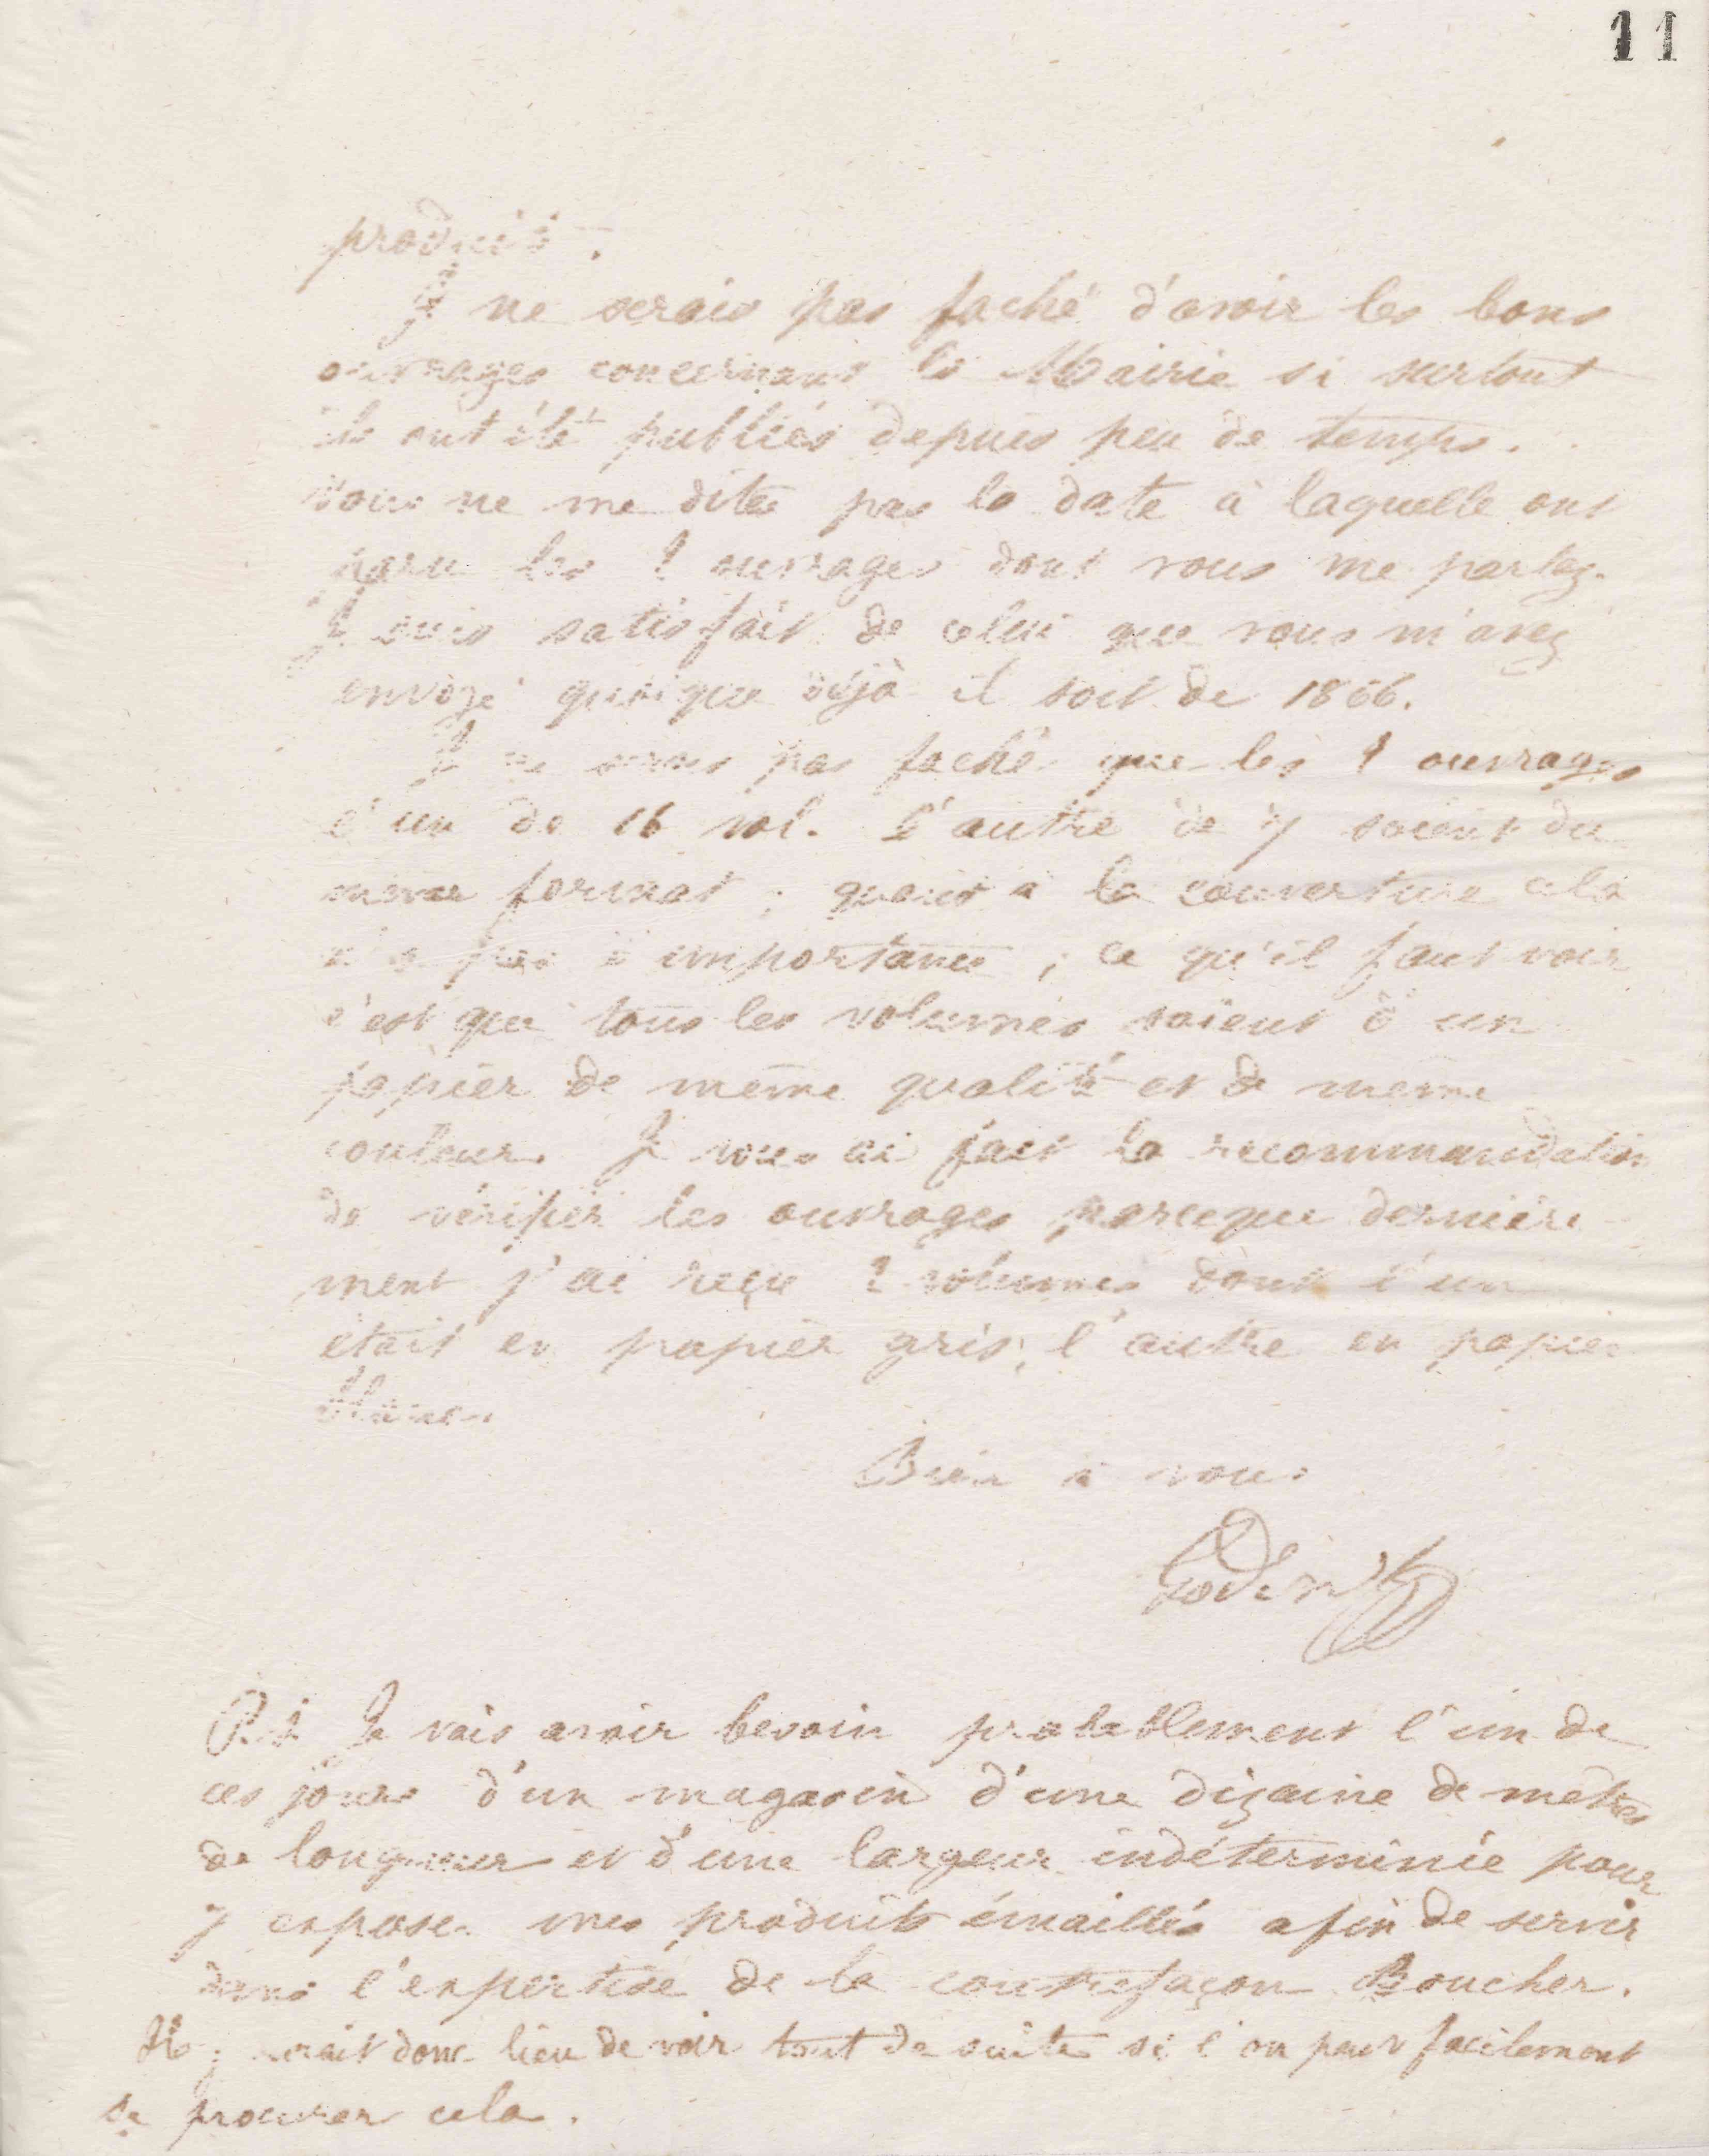 11
produit.
Je ne serais pas faché d'avoir les bons
ouvrages concernant la Mairie si surtout
ils ont été publiés depuis peu de temps.
Vous ne me dites pas la date à laquelle ont
paru les 2 ouvrages dont vous me parlez.
Je suis satisfait de celui que vous m'avez
envoyé quoique déjà il soit de 1866.
Je ne serais pas faché que les 2 ouvrages
l'un de 16 vol. l'autre de 7 soient du
même format ; quant à la couverture cela
n'a pas d'importance ; ce qu'il faut voir
c'est que tous les volumes soient d'un
papier de même qualité et de même
couleur. Je vous ai fait la recommandation
de vérifier les ouvrages parceque dernière
ment j'ai reçu 2 volumes dont l'un
était en papier gris, l'autre en papier
blanc.
Bien à vous
Godin
P.S. Je vais avoir besoin probablement l'un de
ces jours d'un magasin d'une dizaine de mètres
de longueur et d'une largeur indéterminée pour
y exposer mes produits émaillés afin de servir
dans l'expertise de la contrefaçon Boucher.
Il y aurait donc lieu de voir tout de suite si l'on peut facilement
se procurer cela.